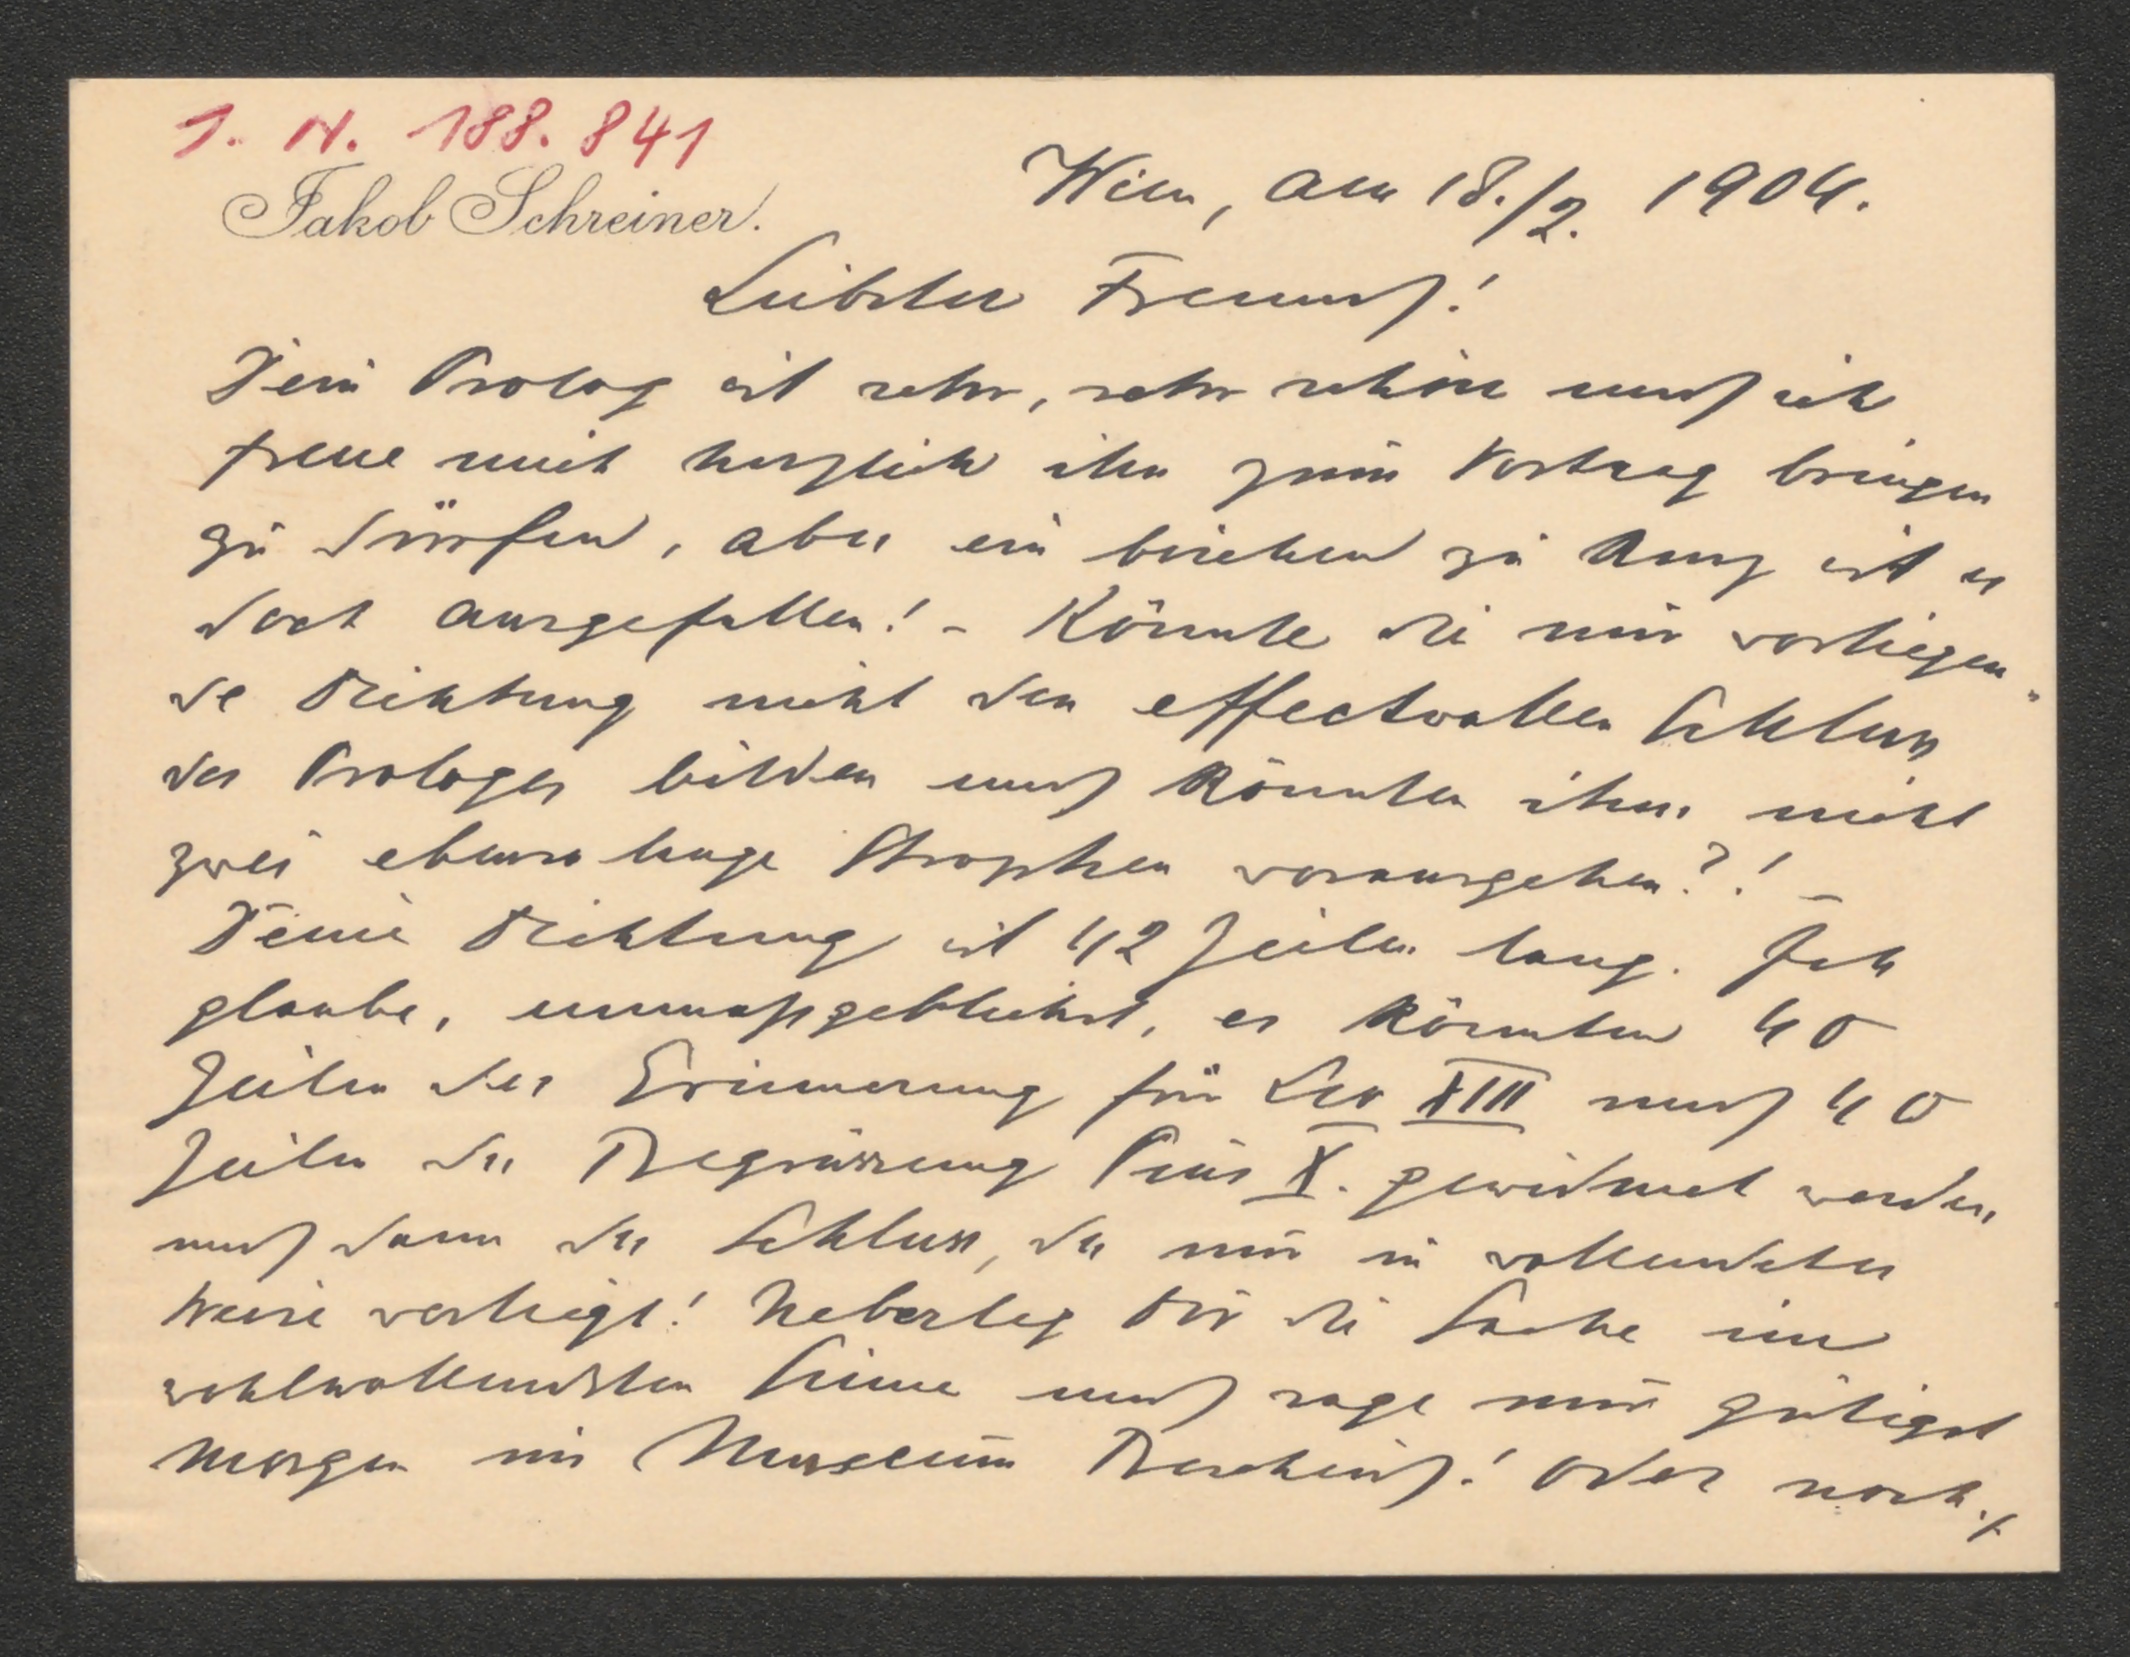 I. N. 188.841
Jakob Schreiner.
Wien, am 18./2. 1904.
Liebster Freund!
Dein Prolog ist sehr, sehr schön und ich
freue mich herzlich ihn zum Vortrag bringen
zu dürfen, aber ein bischen zu kurz ist er
doch ausgefallen! - Könnte die mir vorliegen-
de Dichtung nicht den effectvollen Schluss
des Prologes bilden und könnten ihm nicht
zwei ebenso lange Strophen vorausgehen?! -
Deine Dichtung ist 42 Zeilen lang. Ich
glaube, unmaßgeblichst, es könnten 40
Zeilen der Erinnerung für Leo XIII und 40
Zeilen der Begrüssung Pius X. gewidmet werden,
und dann der Schluss, der mir in vollendeter
Weise vorliegt! Ueberleg Dir die Sache im
wohlwollendsten Sinne und sage mir gütigst
morgen im Museum Bescheid! Oder noch ./.